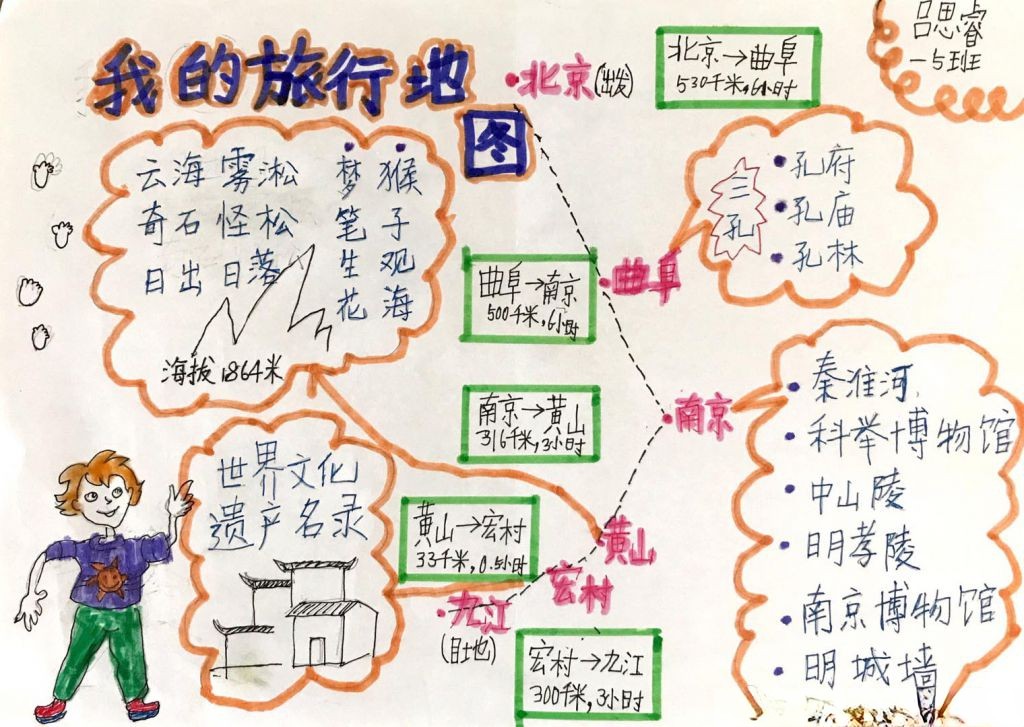 我的旅行地
图
吕思睿
一5班
北京(出发)
北京→曲阜
530千米,6小时
云海 雾淞
奇石 怪松
日出 日落
梦笔生花
猴子观海
海拔1864米
三孔
孔府
孔庙
孔林
曲阜
曲阜→南京
500千米,6小时
南京
南京→黄山
316千米,3小时
秦淮河
科举博物馆
中山陵
明孝陵
南京博物馆
明城墙
世界文化
遗产名录
黄山→宏村
33千米,0.5小时
黄山
宏村
九江
(目地)
宏村→九江
300千米,3小时